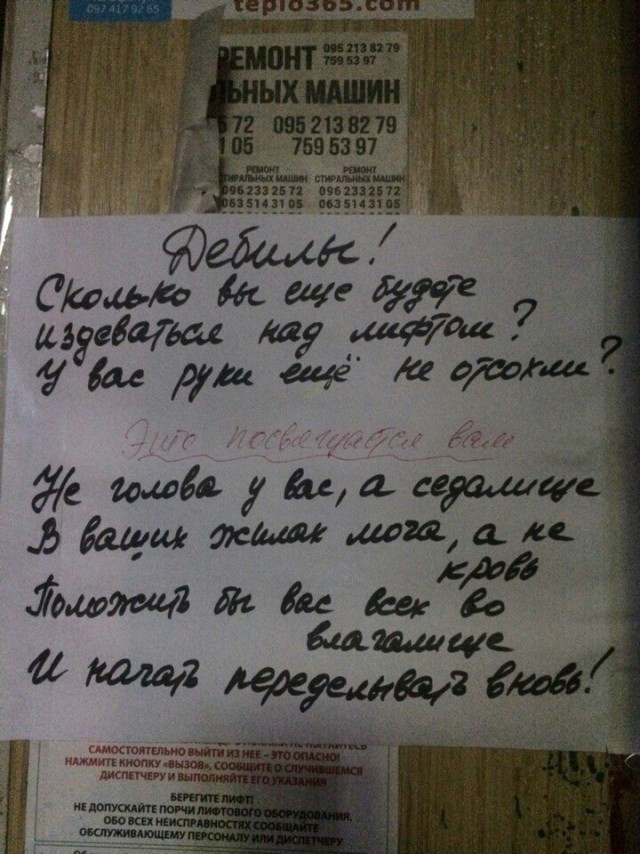 097 417 92 65
teplo365.com
РЕМОНТ 095 213 82 79
759 53 97
ЛЬНЫХ МАШИН
5 72 095 213 82 79
1 05 759 53 97
РЕМОНТ РЕМОНТ
СТИРАЛЬНЫХ МАШИН СТИРАЛЬНЫХ МАШИН
096 233 25 72 096 233 25 72
063 514 31 05 063 514 31 05
Дебилы!
Сколько вы еще будете
издеваться над лифтом?
У вас руки ещё не отсохли?
Это посвящается вам
Не голова у вас, а седалище
В ваших жилах моча, а не
кровь
Положить бы вас всех во
влагалище
И начать переделывать вновь!
САМОСТОЯТЕЛЬНО ВЫЙТИ ИЗ НЕЕ – ЭТО ОПАСНО!
НАЖМИТЕ КНОПКУ «ВЫЗОВ», СООБЩИТЕ О СЛУЧИВШЕМСЯ
ДИСПЕТЧЕРУ И ВЫПОЛНЯЙТЕ ЕГО УКАЗАНИЯ
БЕРЕГИТЕ ЛИФТ!
НЕ ДОПУСКАЙТЕ ПОРЧИ ЛИФТОВОГО ОБОРУДОВАНИЯ.
ОБО ВСЕХ НЕИСПРАВНОСТЯХ СООБЩАЙТЕ
ОБСЛУЖИВАЮЩЕМУ ПЕРСОНАЛУ ИЛИ ДИСПЕТЧЕРУ